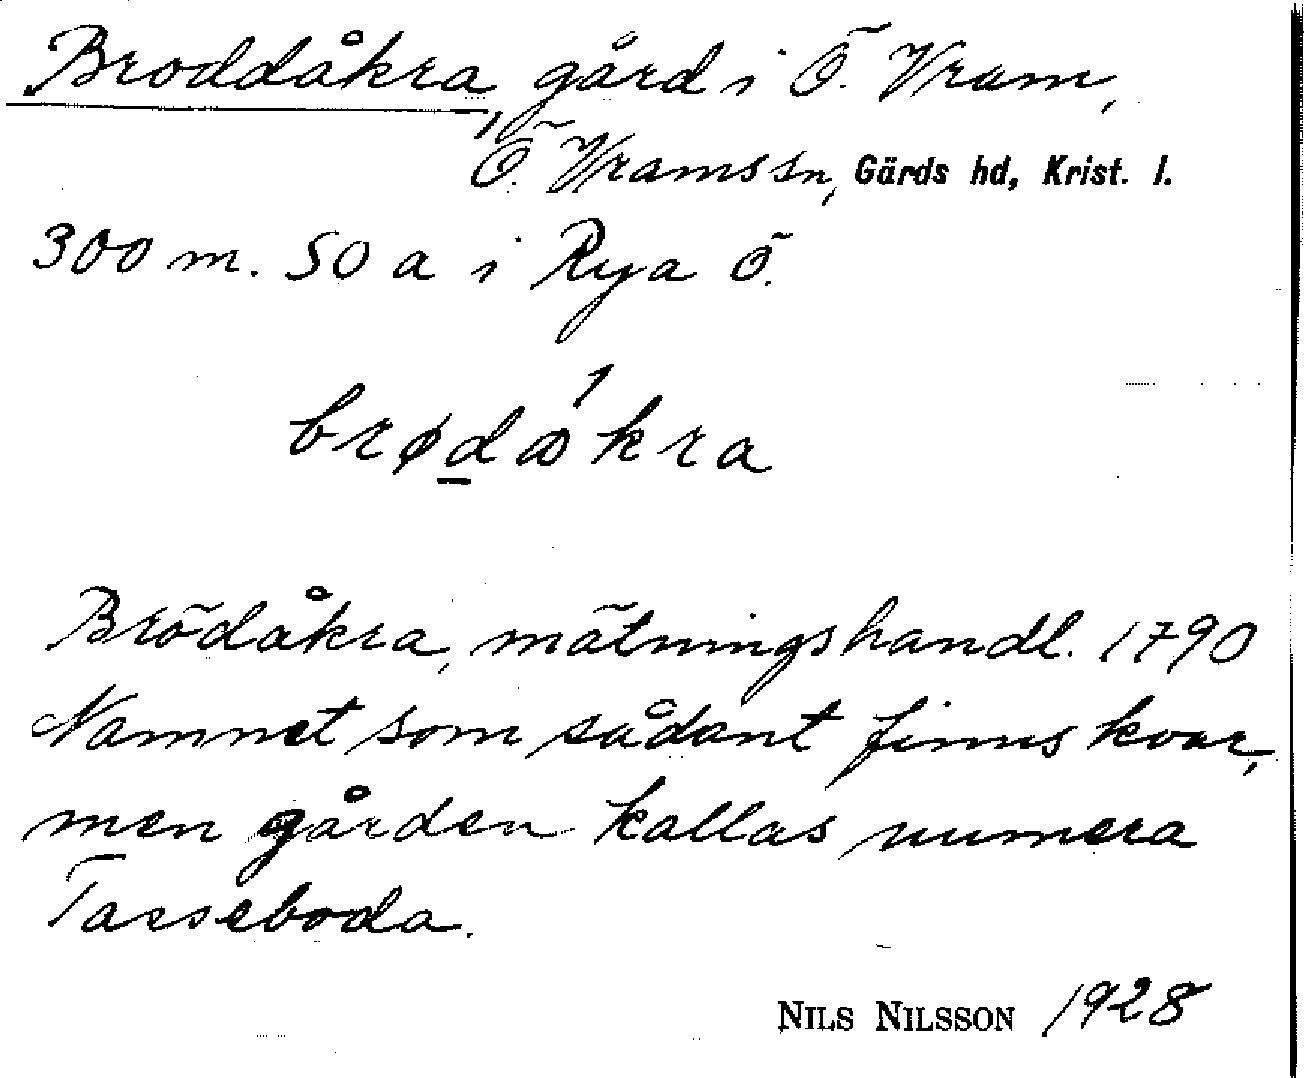 Broddåkra, gård i Ö. Vram,
Ö. Vramssn, Gärds hd, Krist. l.
300 m. SO a i Rya Ö.
brødåkra
Brödåkra, mätningshandl. 1790
Namnet som sådant finns kvar,
men gården kallas numera
Tasseboda.
NILS NILSSON 1928